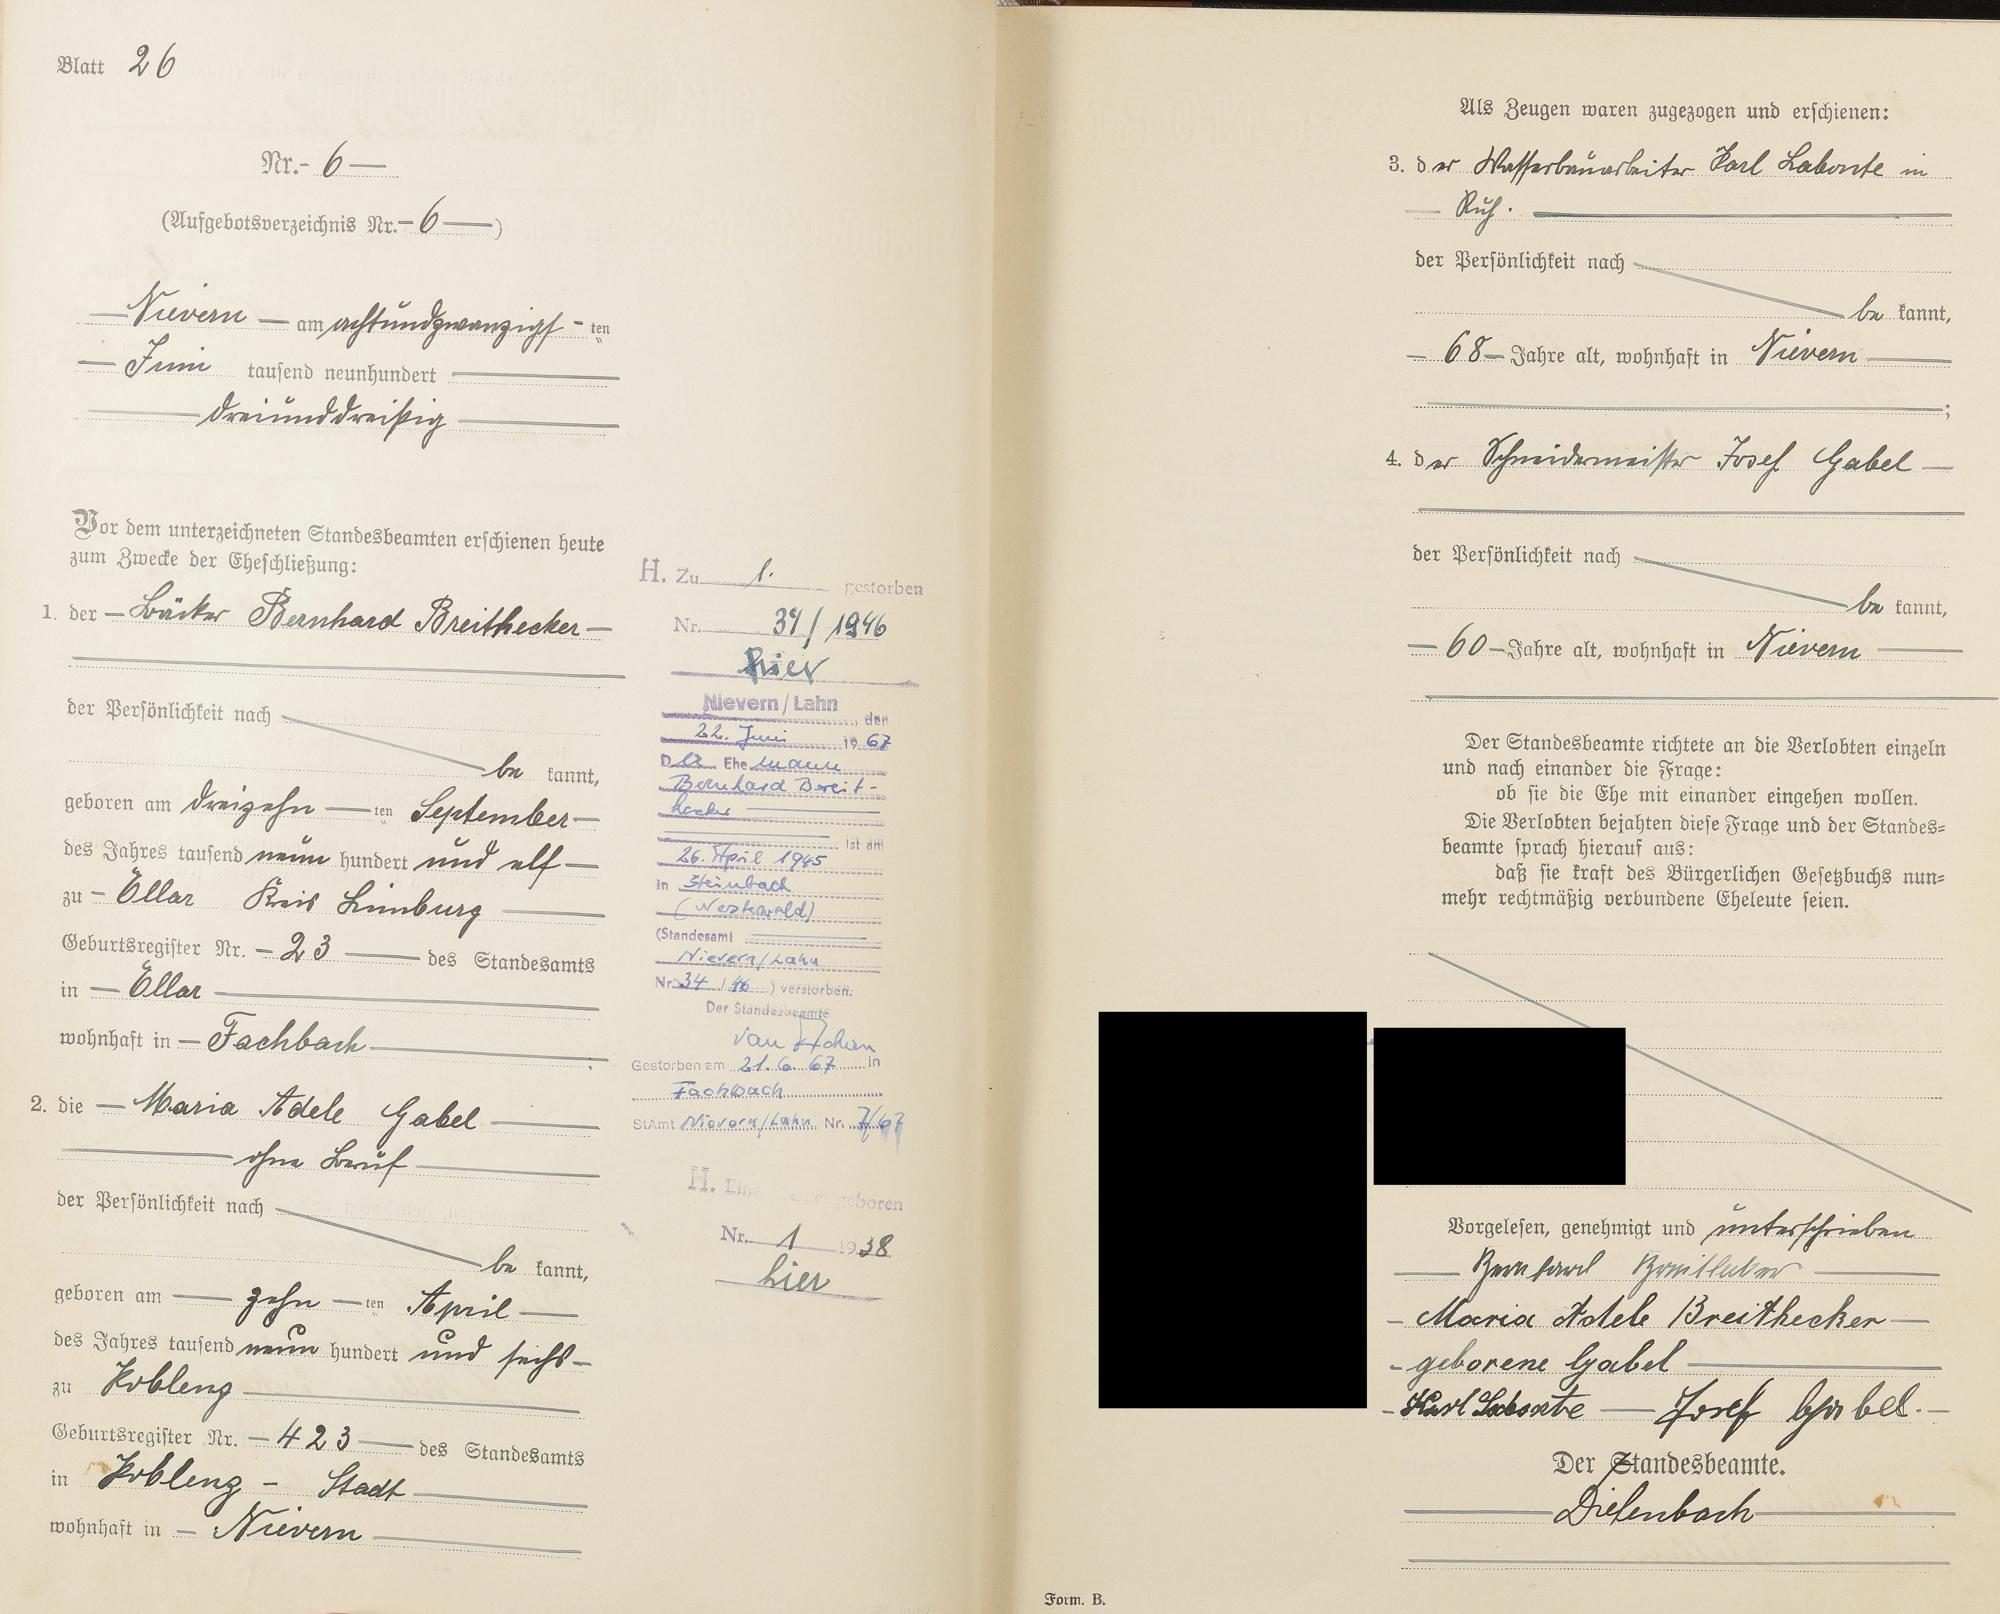 Blatt 26
Nr. 6
(Aufgebotsverzeichnis Nr. 6)
Nievern am achtundzwanzigsten
Juni tausend neunhundert
dreiunddreißig
Vor dem unterzeichneten Standesbeamten erschienen heute
zum Zwecke der Eheschließung:
1. der Bäcker Bernhard Breithecker
der Persönlichkeit nach
be kannt,
geboren am dreizehn ten September
des Jahres tausend neun hundert und elf
zu Ellar Kreis Limburg
Geburtsregister Nr. 23 des Standesamts
in Ellar
wohnhaft in Fachbach
2. die Maria Adele Gabel
ohne Beruf
der Persönlichkeit nach
be kannt,
geboren am zehn ten April
des Jahres tausend neun hundert und sechs
zu Koblenz
Geburtsregister Nr. 423 des Standesamts
in Koblenz - Stadt
wohnhaft in Nievern
H. Zu 1. gestorben
Nr. 34/1946
hier
Nievern/Lahn, den
22. Juni 1967
Der Ehemann
Bernhard Breit-
hecker
ist am
26. April 1945
in Steinbach
(Westerwald)
(Standesamt
Nievern/Lahn
Nr. 34/46) verstorben.
Der Standesbeamte
Gestorben am 21.6.67 in
Fachbach
StAmt Nievern/Lahn Nr. 7/67
H. Eine geboren
Nr. 1 1938
hier
Als Zeugen waren zugezogen und erschienen:
3. der Wasserbauarbeiter Karl Labonte in
Ruh.
der Persönlichkeit nach
be kannt,
68 Jahre alt, wohnhaft in Nievern
;
4. der Schneidermeister Josef Gabel
der Persönlichkeit nach
be kannt,
60 Jahre alt, wohnhaft in Nievern
Der Standesbeamte richtete an die Verlobten einzeln
und nach einander die Frage:
ob sie die Ehe mit einander eingehen wollen.
Die Verlobten bejahten diese Frage und der Standes-
beamte sprach hierauf aus:
daß sie kraft des Bürgerlichen Gesetzbuchs nun-
mehr rechtmäßig verbundene Eheleute seien.
Vorgelesen, genehmigt und unterschrieben
Bernhard Breithecker
Maria Adele Breithecker
geborene Gabel
Karl Labonte Josef Gabel.
Der Standesbeamte.
Diefenbach
Form. B.